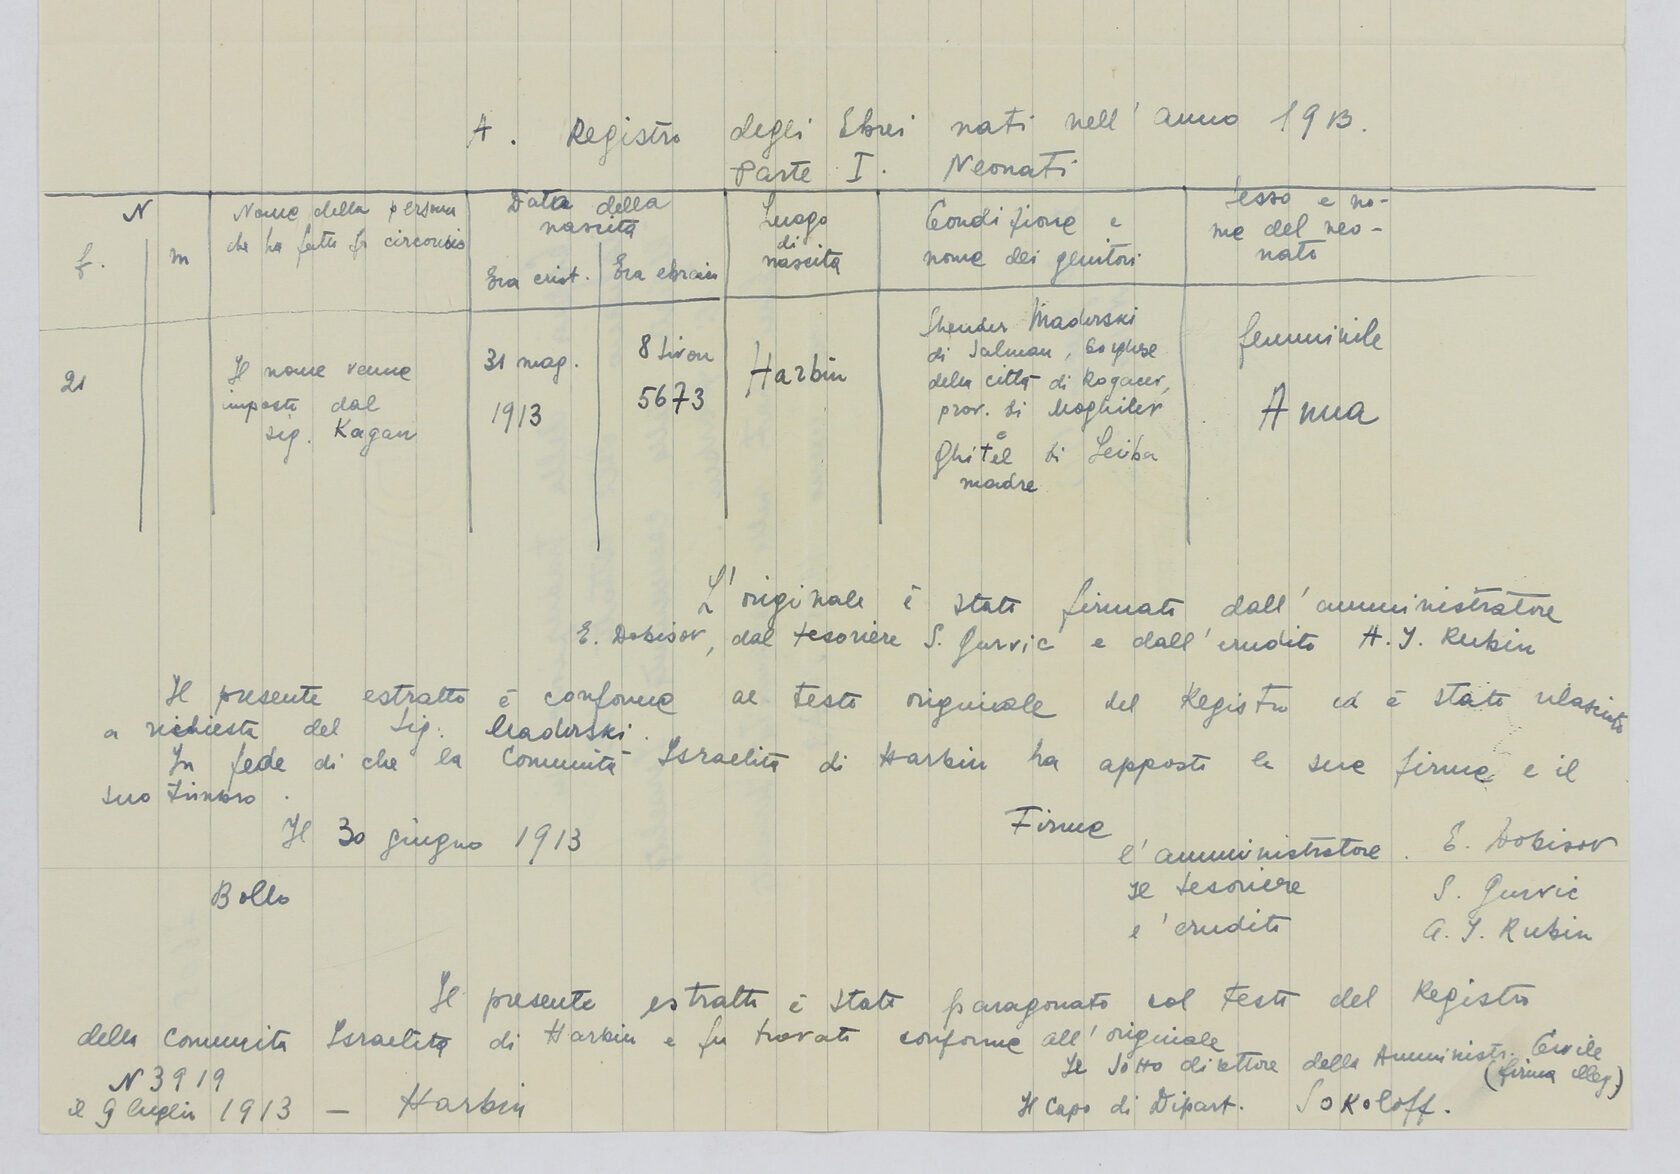 A. Registro degli Ebrei nati nell'anno 1913.
Parte I. Neonati
N
f. m
Nome della persona
che ha fatto la circoncis
Data della
nascita
Era crist. Era ebraica
Luogo
di
nascita
Condizione e
nome dei genitori
Sesso e no-
me del neo-
nato
21
Il nome venne
imposto dal
sig. Kagan
31 mag.
1913
8 Sivon
5673
Harbin
Shender Maderski
di Salman, borghese
della città di Rogacev,
prov. di Moghilev
e
Ghitel di Leiba
madre
femminile
Anna
L'originale è stato firmato dall'amministratore
E. Dobisov, dal tesoriere S. Gurvic e dall'erudito A. I. Rubin
Il presente estratto è conforme al testo originale del Registro ed è stato rilasciato
a richiesta del Sig. Maderski.
In fede di che la Comunità Israelita di Harbin ha apposto le sue firme e il
suo timbro.
Il 30 giugno 1913
Firme
l'amministratore. E. Dobisov
Bollo
Il tesoriere S. Gurvic
l'erudito A. I. Rubin
Il presente estratto è stato paragonato col testo del Registro
della Comunità Israelita di Harbin e fu trovato conforme all'originale
Il Sotto direttore della Amministr. Civile
(firma illeg.)
N 3919
il 9 luglio 1913 — Harbin
Il Capo di Dipart. Sokoloff.